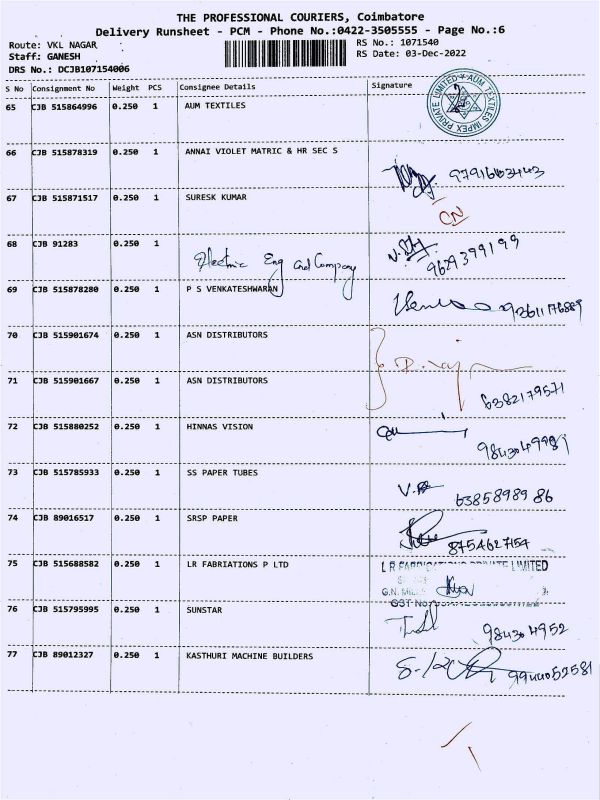 THE PROFESSIONAL COURIERS, Coimbatore
Delivery Runsheet - PCM - Phone No.:0422-3505555 - Page No.:6
Route: VKL NAGAR RS No.: 1071540
Staff: GANESH RS Date: 03-Dec-2022
DRS No.: DCJB107154006
S No Consignment No Weight PCS Consignee Details Signature
65 CJB 515864996 0.250 1 AUM TEXTILES
AUM TEXTILES IMPEX PRIVATE LIMITED
66 CJB 515878319 0.250 1 ANNAI VIOLET MATRIC & HR SEC S
67 CJB 515871517 0.250 1 SURESK KUMAR
CN
68 CJB 91283 0.250 1
Electric Eng and Company
9629399199
69 CJB 515878280 0.250 1 P S VENKATESHWARAN
70 CJB 515901674 0.250 1 ASN DISTRIBUTORS
71 CJB 515901667 0.250 1 ASN DISTRIBUTORS
6382179571
72 CJB 515880252 0.250 1 HINNAS VISION
73 CJB 515785933 0.250 1 SS PAPER TUBES
6385898986
74 CJB 89016517 0.250 1 SRSP PAPER
8754627154
75 CJB 515688582 0.250 1 LR FABRIATIONS P LTD
76 CJB 515795995 0.250 1 SUNSTAR
984304952
77 CJB 89012327 0.250 1 KASTHURI MACHINE BUILDERS